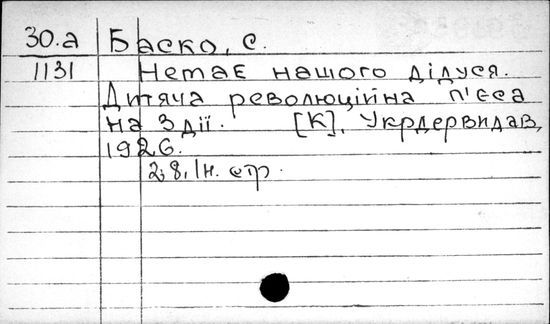 30.а Баско, С.
1131 Немає нашого дідуся.
Дитяча революційна п'єса
на 3 дії. [К], Укрдержвидав,
1926.
28, 1н. стр.